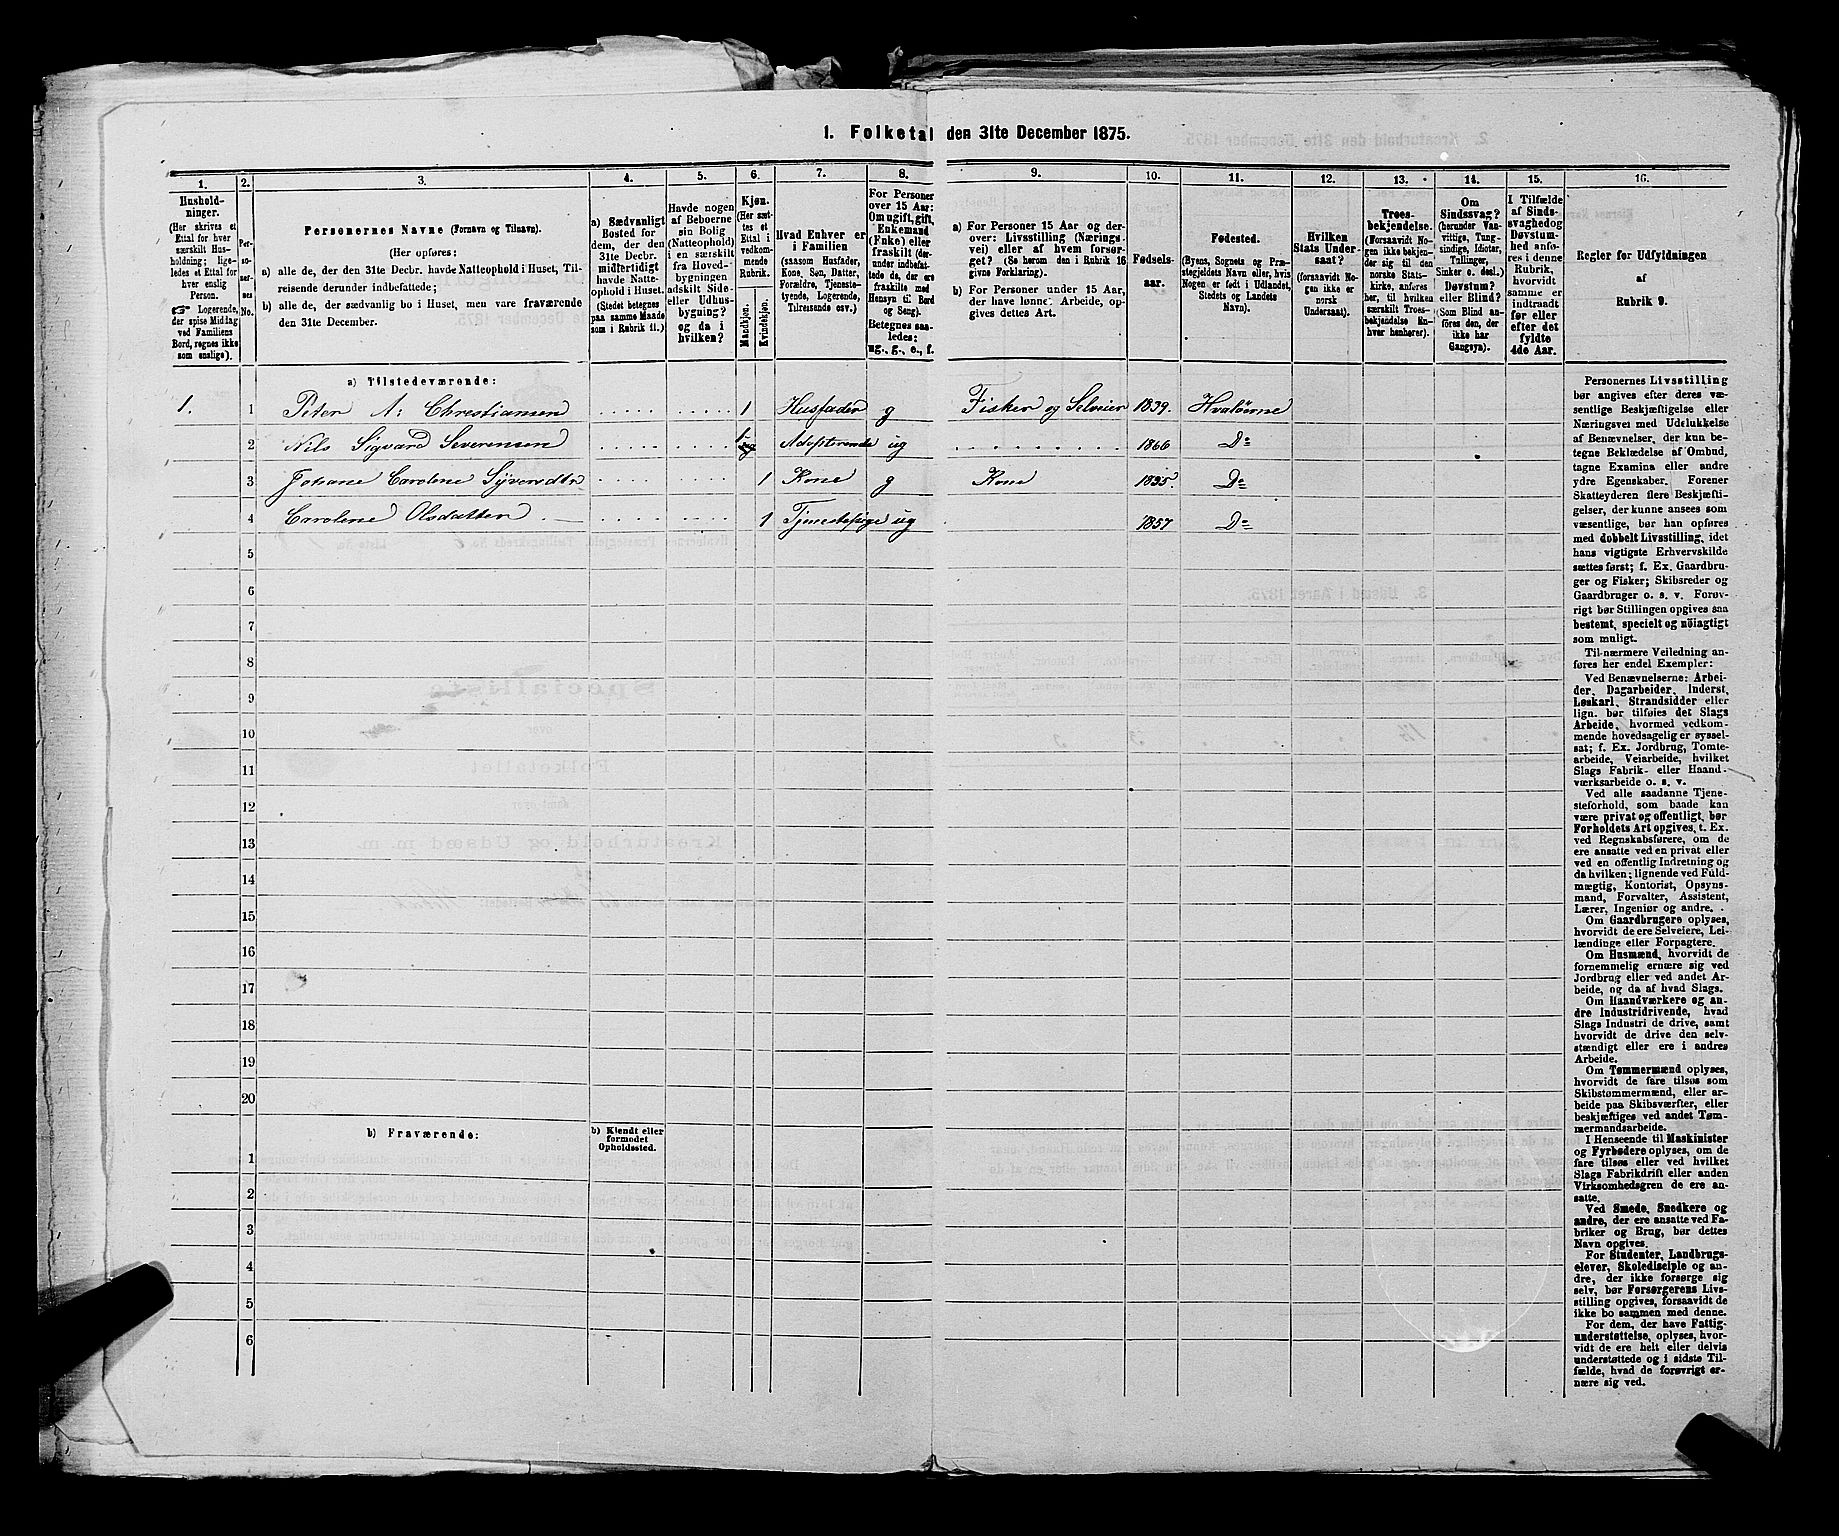 1. Folketal den 31te December 1875.
1. 2. 3. 4. 5. 6. 7. 8. 9. 10. 11. 12. 13. 14. 15. 16.
Hushold-
ninger.
(Her skrives et
Ettal for hver
særskilt Hus-
holdning; lige-
ledes et Ettal for
hver enslig
Person.
Logerende,
der spise Middag
ved Familiens
Bord, regnes ikke
som enslige).
Per-
so-
ner-
nes
No.
Personernes Navne (Fornavn og Tilnavn).
(Her opføres:
a) alle de, der den 31te Decbr. havde Natteophold i Huset, Til-
reisende derunder indbefattede;
b) alle de, der sædvanlig bo i Huset, men vare fraværende
den 31te December.
a) Sædvanligt
Bosted for
dem, der den
31te Decbr.
midlertidigt
havde Natte-
ophold i Huset.
(Stedet betegnes
paa samme Maade
som i Rubrik 11.)
Havde nogen
af Beboerne
sin Bolig
(Natteophold)
i en særskilt
fra Hoved-
bygningen
adskilt Side-
eller Udhus-
bygning?
og da i
hvilken?
Kjøn.
(Her sæt-
tes et
Ettal i
vedkom-
mende
Rubrik.
Mandkjøn.
Kvindekjøn.
Hvad Enhver er
i Familien
(saasom Husfader,
Kone, Søn, Datter,
Forældre, Tjeneste-
tyende, Logerende,
Tilreisende osv.)
For Personer
over 15 Aar:
Om ugift, gift,
Enkemand
(Enke) eller
fraskilt (der-
under indbefat-
tede de, der ere
fraskilte med
Hensyn til Bord
og Seng).
Betegnes saa-
ledes:
ug., g., e., f.
a) For Personer 15 Aar og der-
over: Livsstilling (Nærings-
vei) eller af hvem forsør-
get? (Se herom den i Rubrik 16
givne Forklaring).
b) For Personer under 15 Aar,
der have lønnet Arbeide, op-
gives dettes Art.
Fødsels-
aar.
Fødested.
(Byens, Sognets og Præ-
stegjeldets Navn eller, hvis
Nogen er født i Udlandet,
Stedets og Landets
Navn).
Hvilken
Stats Under-
saat?
(forsaavidt No-
gen ikke er
norsk
Undersaat).
Troes-
bekjendelse.
(Forsaavidt No-
gen ikke bekjen-
der sig til den
norske Stats-
kirke, anføres
her, til hvilken
særskilt Troes-
bekjendelse En-
hver henhører).
Om
Sindssvag?
(herunder Van-
vittige, Tung-
sindige, Idioter,
Tullinger,
Sinker o. desl.)
Døvstum?
eller Blind?
(Som Blind an-
føres den, der
ikke har
Gangsyn).
I Tilfælde
af Sinds-
svaghed og
Døvstum-
hed anfø-
res i denne
Rubrik,
hvorvidt
samme er
indtraadt
før eller
efter det
fyldte
4de Aar.
Regler for Udfyldningen
af
Rubrik 9.
a) Tilstedeværende:
1. 1 Peter A: Christiansen 1 Husfader g Fisker og Selveier 1839. Hvaløerne
2 Nils Sigvard Severensen 1 ug 1866 Do
3 Johane Carolene Syverdtr 1 Kone g Kone 1835. Do
4 Carolene Olsdatter 1 Tjenestepige ug 1857 Do
5
6
7
8
9
10
11
12
13
14
15
16
17
18
19
20
b) Fraværende:
b) Kjendt eller
formodet
Opholdssted.
1
2
3
4
5
6
Personernes Livsstilling
bør angives efter deres væ-
sentlige Beskjæftigelse eller
Næringsvei med Udelukkelse
af Benævnelser, der kun be-
tegne Beklædelse af Ombud,
tagne Examina eller andre
ydre Egenskaber. Forener
Skatteyderen flere Beskjæfti-
gelser, der kunne ansees som
væsentlige, bør han opføres
med dobbelt Livsstilling, idet
hans vigtigste Erhvervskilde
sættes først; f. Ex. Gaardbru-
ger og Fisker; Skibsreder og
Gaardbruger o. s. v. Forøv-
rigt bør Stillingen opgives saa
bestemt, specielt og nöiagtigt
som muligt.
Til nærmere Veiledning an-
føres her endel Exempler:
Ved Benævnelserne: Arbei-
der, Dagarbeider, Inderst,
Løskarl, Strandsidder eller
lign. bør tilføies det Slags
Arbeide, hvormed vedkom-
mende hovedsagelig er syssel-
sat; f. Ex. Jordbrug, Tomte-
arbeide, Veiarbeide, hvilket
Slags Fabrik- eller Haand-
værksarbeide o. s. v.
Ved alle saadanne Tjene-
steforhold, som baade kan
være privat og offentligt, bør
Forholdets Art opgives, t. Ex.
ved Regnskabsførere, om de
ere ansatte ved en privat eller
ved en offentlig Indretning og
da hvilken; lignende ved Fuld-
mægtig, Kontorist, Opsyns-
mand, Forvalter, Assistent,
Lærer, Ingeniør og andre.
Om Gaardbrugere oplyses,
hvorvidt de ere Selveiere, Lei-
lændinge eller Forpagtere.
Om Husmænd, hvorvidt de
fornemmelig ernære sig ved
Jordbrug eller ved andet Ar-
beide, og da af hvad Slags.
Om Haandværkere og an-
dre Industridrivende, hvad
Slags Industri de drive, samt
hvorvidt de drive den selv-
stændigt eller ere i andres
Arbeide.
Om Tømmermænd oplyses,
hvorvidt de fare tilsøs som
Skibstømmermænd, eller ar-
beide paa Skibsværfter, eller
beskjæftiges ved andet Tøm-
mermandsarbeide.
I Henseende til Maskinister
og Fyrbødere oplyses, om de
fare tilsøs eller ved hvilket
Slags Fabrikdrift eller anden
Virksomhedsgren de ere an-
satte.
Ved Smede, Snedkere og
andre, der ere ansatte ved Fa-
briker og Brug, bør dettes
Navn opgives.
For Studenter, Landbrugs-
elever, Skoledisciple og an-
dre, der ikke forsørge sig
selv, bør Forsørgerens Livs-
stilling opgives, forsaavidt de
ikke bo sammen med denne.
For dem, der have Fattig-
understøttelse, oplyses, hvor-
vidt de ere helt eller delvis
understøttede og i sidste Til-
fælde, hvad de forøvrigt er-
nære sig ved.